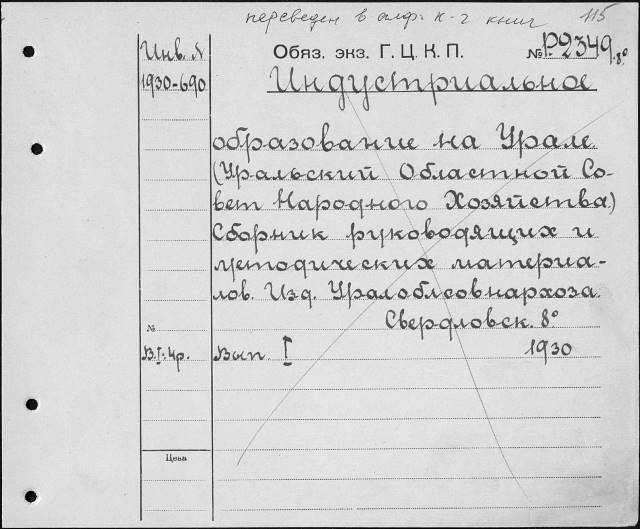 переведен в алф. к-г книг 115
Инв. № Обяз. экз. Г. Ц. К. П. № Р.2349.8°
1930-690 Индустриальное
образование на Урале.
(Уральский Областной Со-
вет Народного Хозяйства)
Сборник руководящих и
методических материа-
лов. Изд. Уралоблсовнархоза.
Свердловск. 8°
№
В.I.чр. Вып. I 1930
Цена